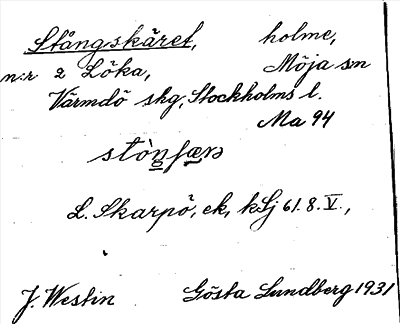 Stångskäret, holme,
n:r 2 Löka, Möja sn
Värmdö skg, Stockholms l.
Ma 94
stòn̲fæ̲rə
L. Skarpö, ek, kSj 61.8.V.,
J. Westin Gösta Lundberg 1931